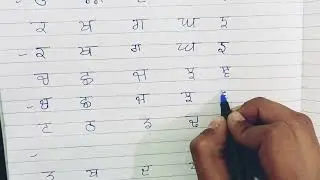 ਕ ਖ ਗ ਘ ਙ
- ਕ ਖ ਗ ਘ ਙ
ਚ ਛ ਜ ਝ ਞ
- ਚ ਛ ਜ ਝ
ਟ ਠ ਡ ਢ
-
ਤ ਥ ਦ